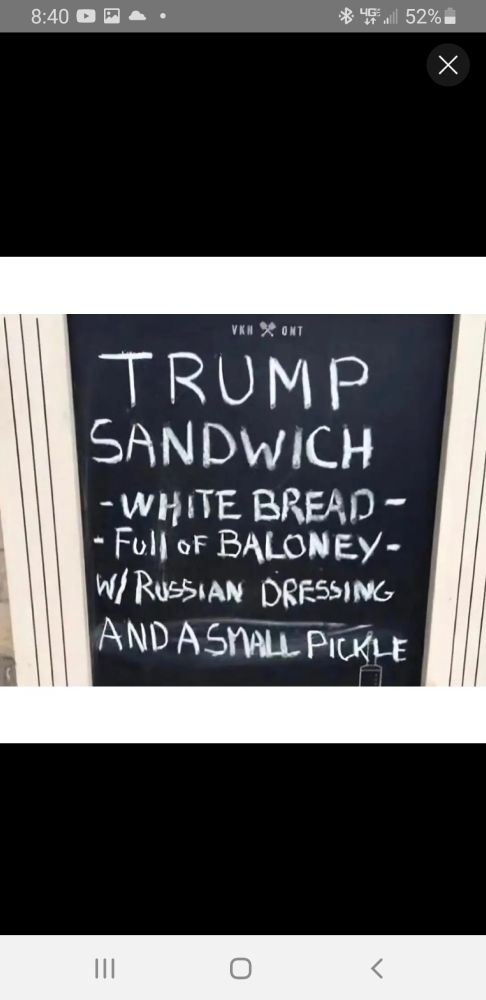 8:40 52%
VKH ONT
TRUMP
SANDWICH
-WHITE BREAD-
-Full oF BALONEY-
W/ RUSSIAN DRESSING
AND A SMALL PICKLE